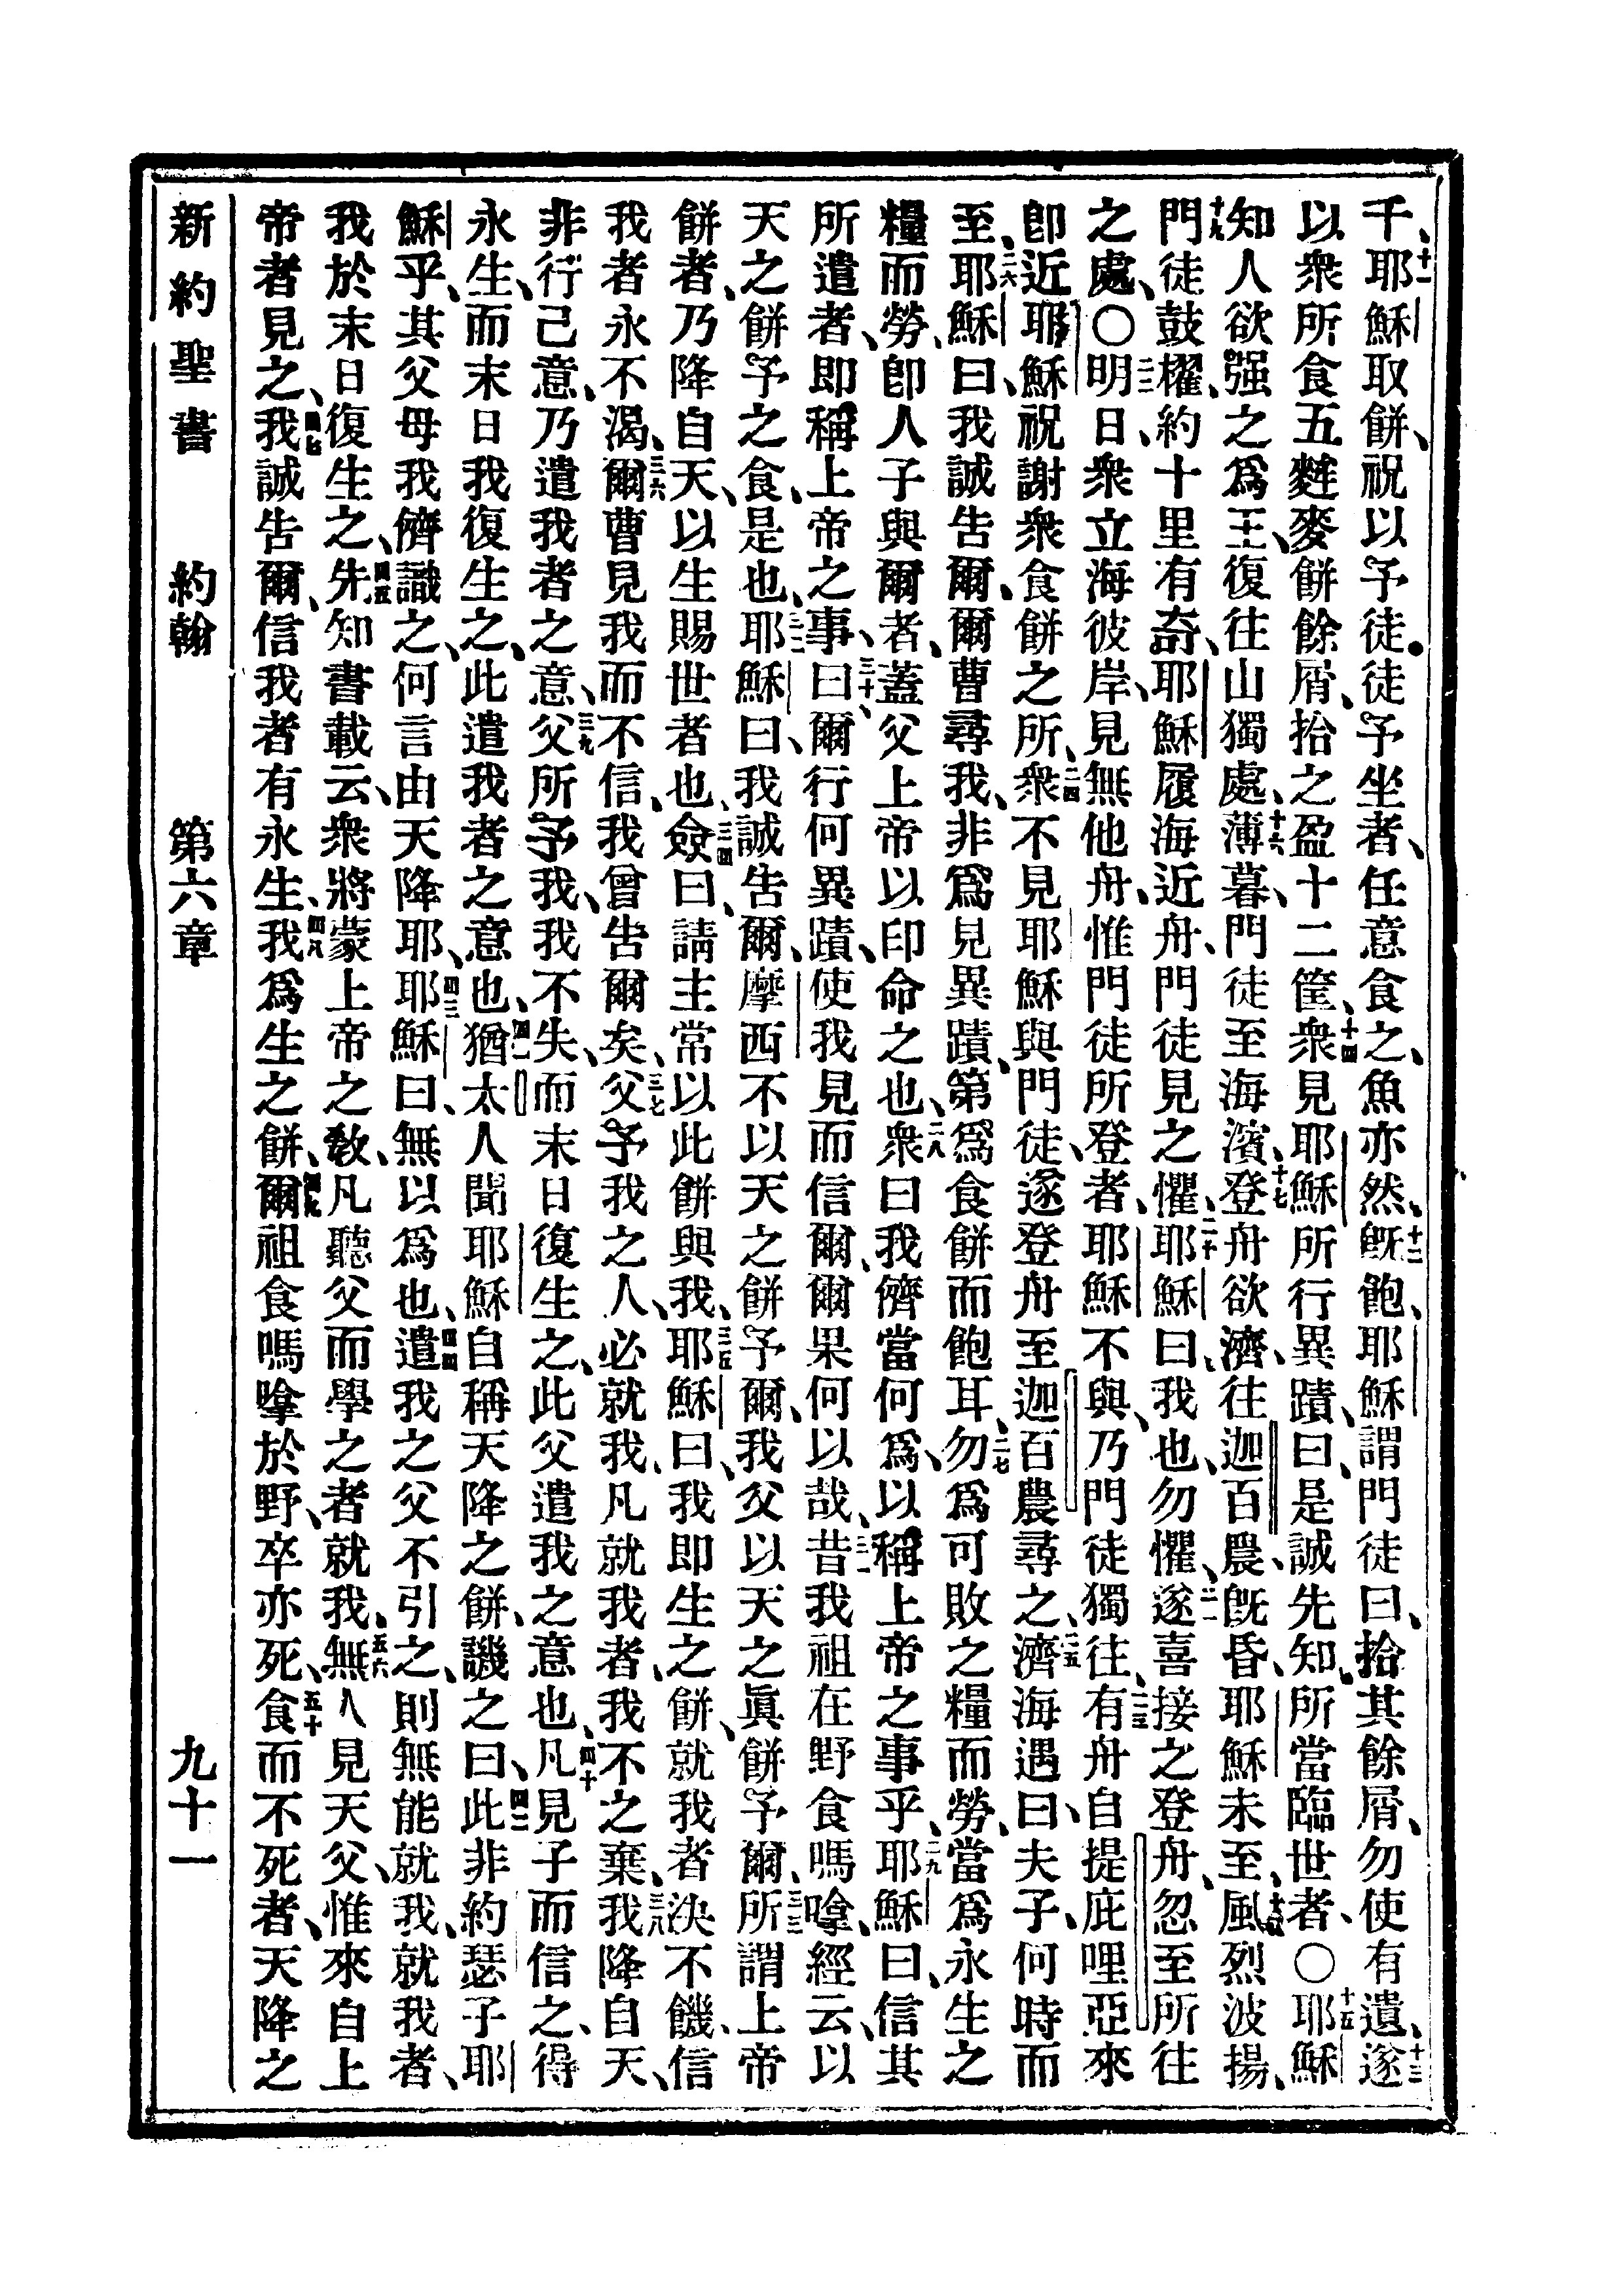 千、十一耶穌取餅、祝以予徒、徒予坐者、任意食之、魚亦然、十二旣飽、耶穌謂門徒曰、拾其餘屑、勿使有遺、十三遂
以衆所食五麰麥餅餘屑、拾之盈十二筐、十四衆見耶穌所行異蹟、曰、是誠先知、所當臨世者、〇十五耶穌
知人欲强之爲王、復往山獨處、十六薄暮、門徒至海濱、十七登舟欲濟、往迦百農、旣昏、耶穌未至、十八風烈波揚、
十九門徒鼓櫂、約十里有奇、耶穌履海近舟、門徒見之懼、二十耶穌曰、我也、勿懼、二一遂喜接之登舟、忽至所往
之處、〇二二明日、衆立海彼岸、見無他舟、惟門徒所登者、耶穌不與、乃門徒獨往、二三有舟自提庇哩亞來
卽近耶穌祝謝衆食餅之所、二四衆不見耶穌與門徒、遂登舟至迦百農尋之、二五濟海遇曰、夫子、何時而
至、二六耶穌曰、我誠告爾、爾曹尋我、非爲見異蹟、第爲食餅而飽耳、二七勿爲可敗之糧而勞、當爲永生之
糧而勞、卽人子與爾者、蓋父上帝以印命之也、二八衆曰我儕當何爲、以稱上帝之事乎、二九耶穌曰、信其
所遣者、卽稱上帝之事、三十曰、爾行何異蹟、使我見而信爾、爾果何以哉、三一昔我祖在野食嗎嗱、經云、以
天之餅予之食、是也、三二耶穌曰、我誠告爾、摩西不以天之餅予爾、我父以天之眞餅予爾、三三所謂上帝
餅者、乃降自天、以生賜世者也、三四僉曰、請主常以此餅與我、三五耶穌曰、我卽生之餅、就我者決不饑、信
我者永不渴、三六爾曹見我而不信、我曾告爾矣、三七父予我之人、必就我、凡就我者、我不之棄、三八我降自天、
非行己意、乃遣我者之意、三九父所予我、我不失、而末日復生之、此父遣我之意也、四十凡見子而信之、得
永生、而末日我復生之、此遣我者之意也、四一猶太人聞耶穌自稱天降之餅、譏之曰、四二此非約瑟子耶
穌乎、其父母我儕識之、何言由天降耶、四三耶穌曰、無以爲也、四四遣我之父不引之、則無能就我、就我者、
我於末日復生之、四五先知書載云、衆將蒙上帝之敎、凡聽父而學之者就我、五六無人見天父、惟來自上
帝者見之、四七我誠告爾、信我者有永生、四八我爲生之餅、四九爾祖食嗎嗱於野、卒亦死、五十食而不死者、天降之
新約聖書 約翰 第六章 九十一